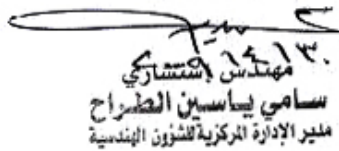 مهندس إستشاري
سامي ياسين الطراح
مدير الإدارة المركزية للشؤون الهندسية